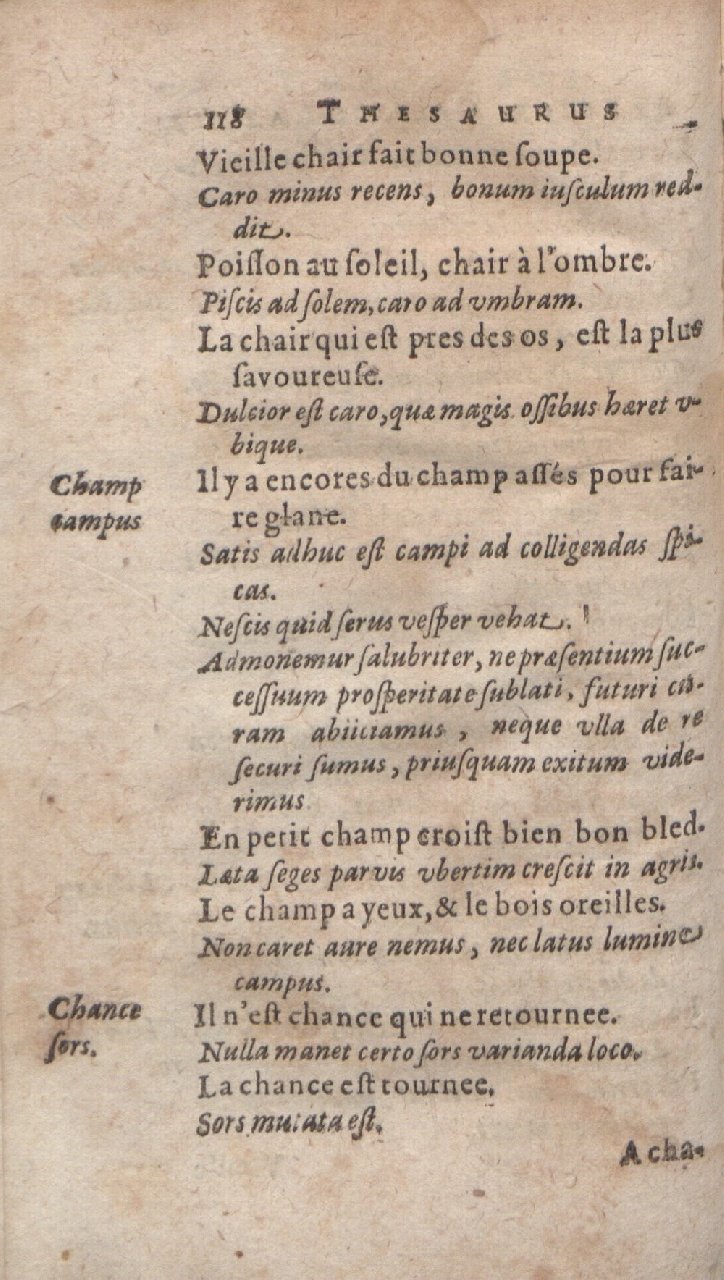 118 THESAURUS
Vieille chair fait bonne ſoupe.
Caro minus recens, bonum iuſculum red-
dit.
Poiſſon au ſoleil, chair à l'ombre.
Piſcis ad ſolem, caro ad vmbram.
La chair qui eſt pres des os, eſt la plus
ſavoureuſe.
Dulcior eſt caro, quæ magis oſſibus hæret v-
bique.
Champ
campus
Il y a encores du champ aſſés pour fai-
re glane.
Satis adhuc eſt campi ad colligendas ſpi-
cas.
Neſcis quid ſerus veſper vehat.
Admonemur ſalubriter, ne præſentium ſuc-
ceſſuum proſperitate ſublati, futuri cu-
ram abiiciamus, neque vlla de re
ſecuri ſumus, priuſquam exitum vide-
rimus
En petit champ croiſt bien bon bled.
Læta ſeges parvis vbertim creſcit in agris.
Le champ a yeux, & le bois oreilles.
Non caret aure nemus, nec latus lumine
campus.
Chance
ſors.
Il n'eſt chance qui ne retournee.
Nulla manet certo ſors varianda loco.
La chance eſt tournee.
Sors mutata eſt.
A cha-